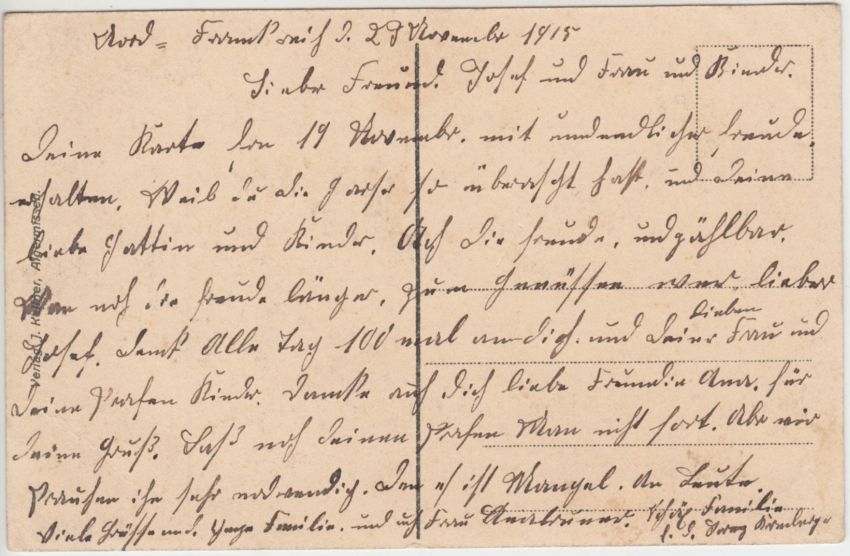 Nord = Frankreich d. 29 November 1915
Liebe Freund. Josef und Frau und Kinder.
Deine Karte den 19 November. mit unendlicher freude,
erhalten. Weib du die so überascht hast. und deine
liebe Gattin und Kinder. Ach die freude. undzählbar.
noch die freude länger. zum Genüssen wer. lieber
Josef. Denk Alle Tag 100 mal an dich. und deiner lieben Frau und
deine Kinder. Danke auch dich liebe Freundin Ana. für
deine Gruß. Laß noch deinen Man nicht fort. Abe wir
ihn sehr nodwendig. Den es ist Mangel. An Leute.
Viele Grüsse und. Familie. und auch Frau Familie
Verlag J. Kellner, Algermissen.